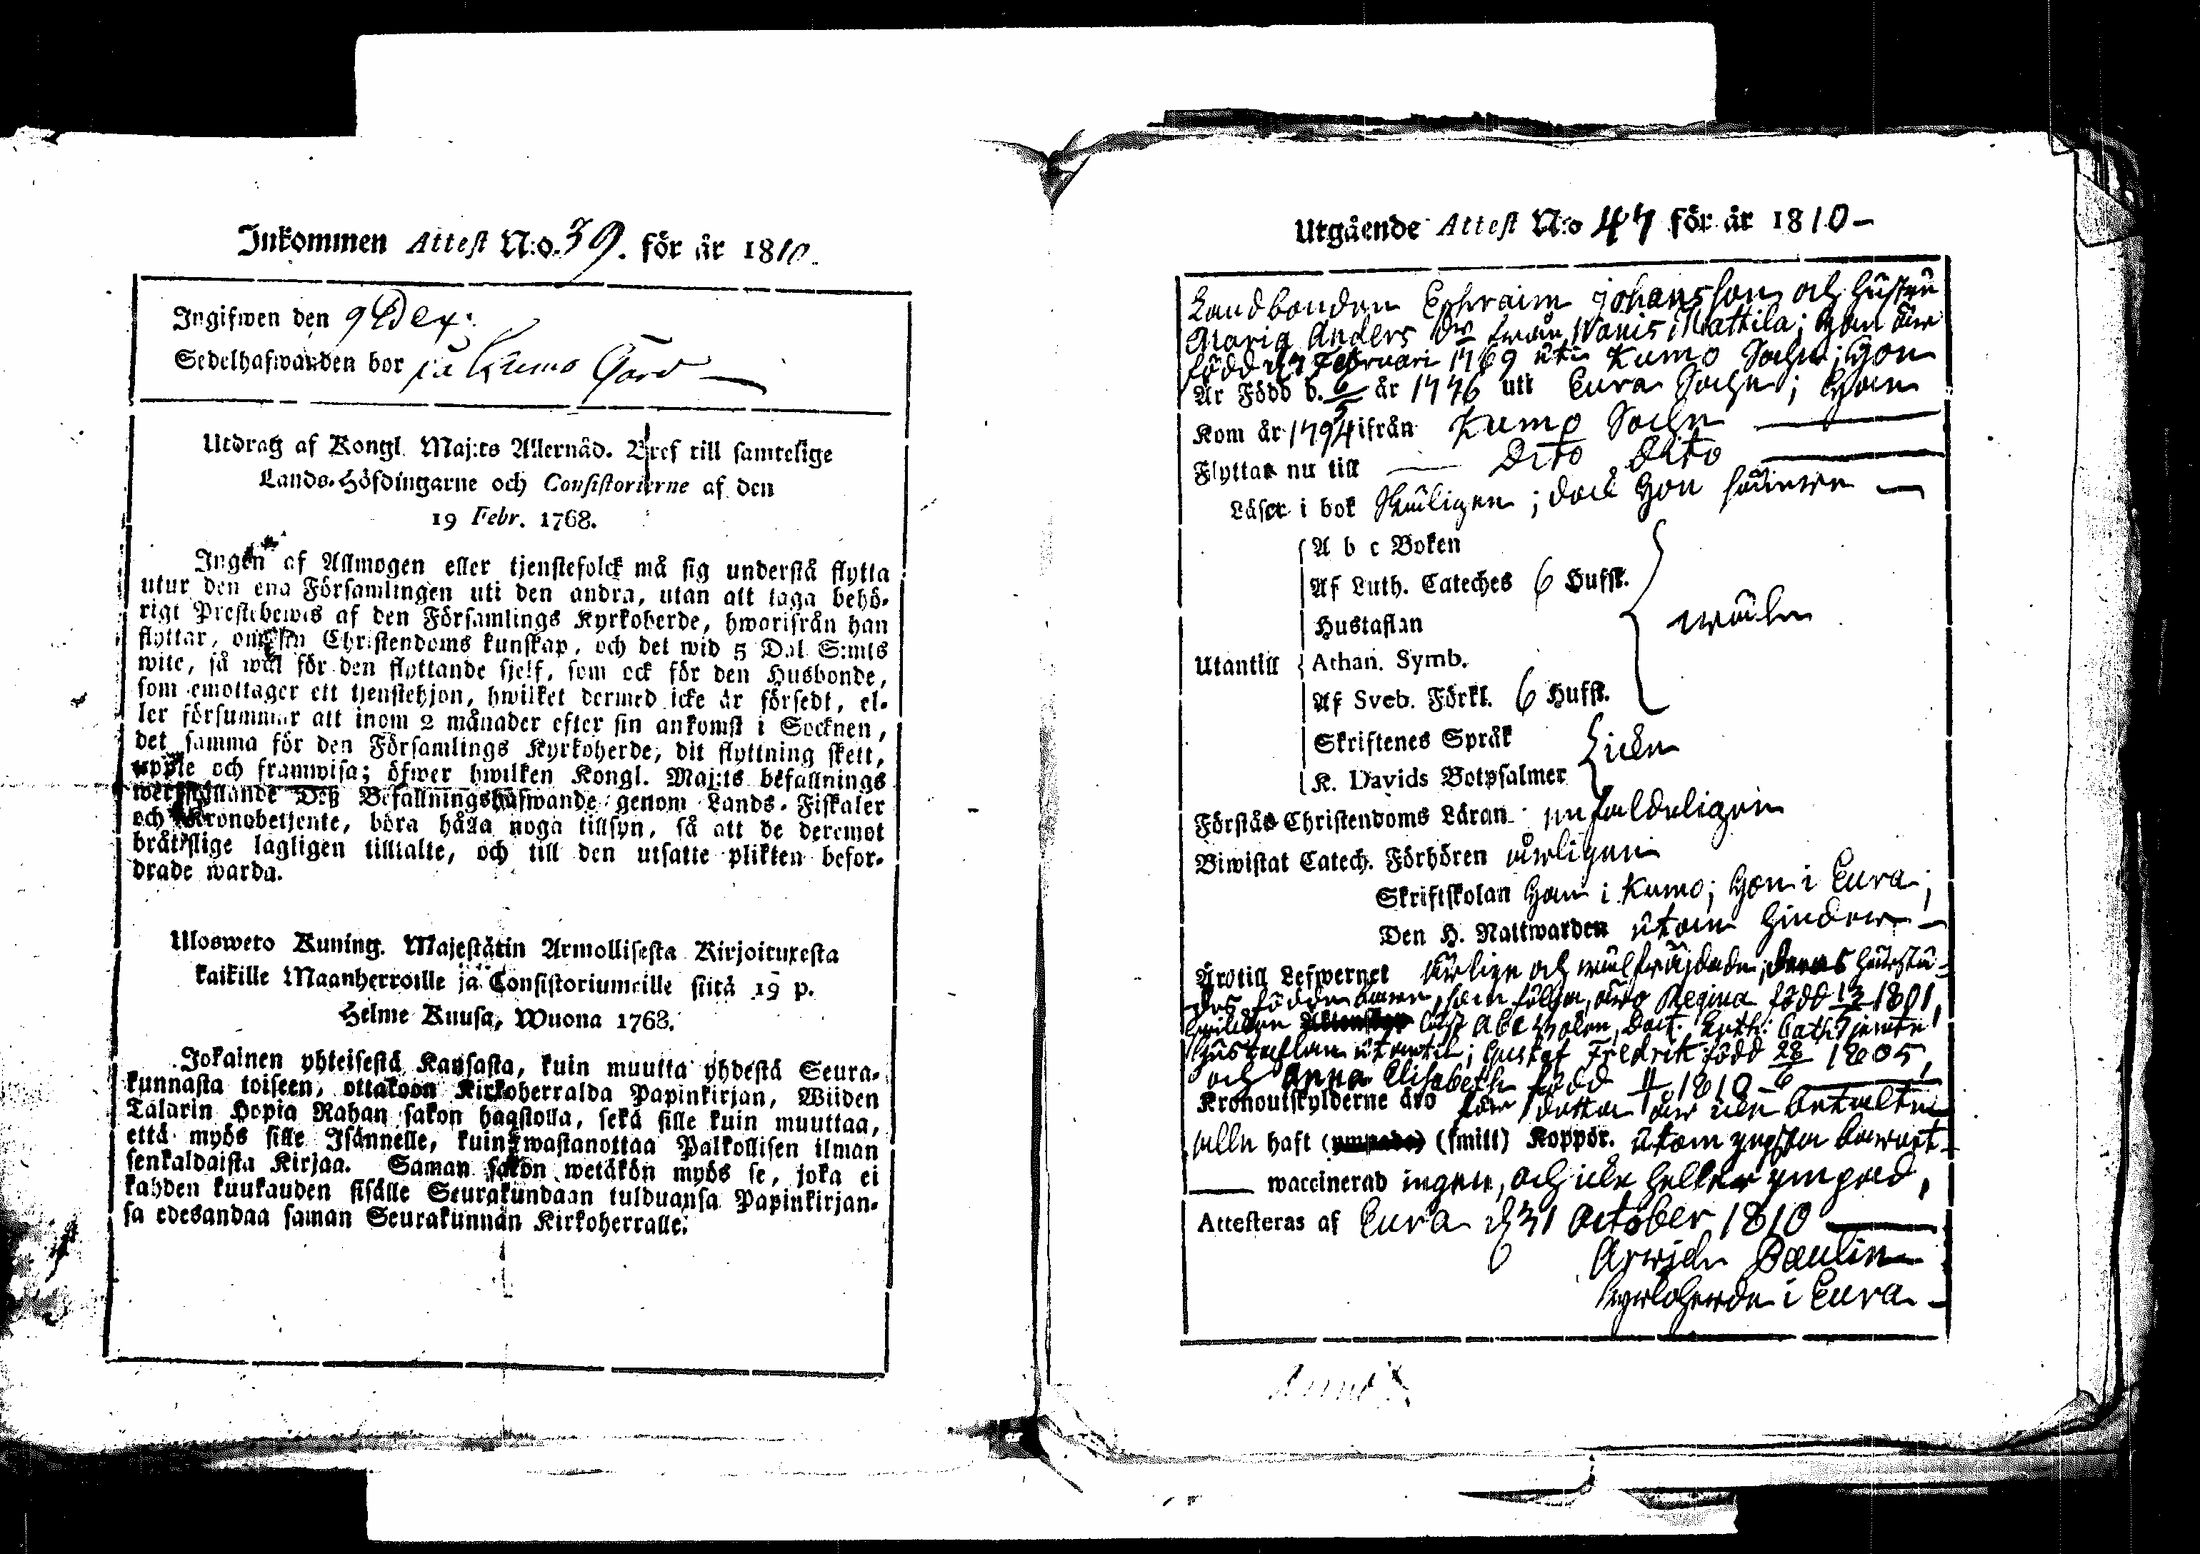 Inkommen Attest N:o. 39. för år 1810.
Ingifwen den 9 Dex.
Sedelhafwanden bor på Kumo Gård
Utdrag af Kongl. Maj:ts Allernåd. Bref till samtelige
Lands-Höfdingarne och Consistorierne af den
19 Febr. 1768.
Ingen af Allmogen eller tjenstefolck må sig understå flytta
utur den ena Församlingen uti den andra, utan att taga behö-
rigt Prestebewis af den Församlings Kyrkoherde, hwarifrån han
flyttar, om sin Christendoms kunskap, och det wid 5 Dal. S:mts
wite, så wäl för den flyttande sjelf, som ock för den Husbonde,
som emottager ett tjenstehjon, hwilket dermed icke är försedt, el-
ler försummar att inom 2 månader efter sin ankomst i Socknen,
det samma för den Församlings Kyrkoherde, dit flyttning skett,
uppte och framwisa; öfwer hwilken Kongl. Maj:ts befallnings
werkställande Deß Befallningshafwande genom Lands-Fiskaler
och Kronobetjente, böra hålla noga tillsyn, så att de deremot
bråtslige lagligen tilltalte, och till den utsatte plikten befor-
drade warda.
Ulosweto Kuning. Majestätin Armollisesta Kirjoituxesta
kaikille Maanherroille ja Consistoriumeille siitä 19 p.
Helme Kuusa, Wuona 1768.
Jokainen yhteisestä Kansasta, kuin muutta yhdestä Seura-
kunnasta toiseen, ottakoon Kirkoherralda Papinkirjan, Wiiden
Talarin Hopia Rahan sakon haastolla, sekä sille kuin muuttaa,
että myös sille Isännelle, kuin wastanottaa Palkollisen ilman
senkaldaista Kirjaa. Saman sakon wetäkön myös se, joka ei
kahden kuukauden sisälle Seurakundaan tulduansa Papinkirjan-
sa edesandaa saman Seurakunnan Kirkoherralle.
Utgående Attest N:o 47 för år 1810 –
Landbonden Ephraim Johansson och hustru
Maria Anders Dr från Nanis Mattila; Han är
född d 7 Februari 1769 uti Kumo Sochn; Hon
Är Född d. 6/5 år 1776 uti Eura Sochn; Han
Kom år 1794 ifrån Kumo Sochn
Flyttar nu till Dito Dito
Läser i bok skäligen; dock Hon sämre
A b c Boken
Af Luth. Cateches 6 Hufst.
Hustaflan
Utantill Athan. Symb. wäl
Af Sveb. Förkl. 6 Hufst.
Skriftenes Språk
K. Davids Botpsalmer icke
Förstår Christendoms Läran enfaldeligen
Biwistat Catech. Förhören årligen
Skriftskolan Han i Kumo; Hon i Eura;
Den H. Nattwarden utom hinder –
Äro till Lefwernet ärlige och wälfräjdade; deras
födde barn, som följa, äro Regina född 1801,
A b c Boken, Luth. Cath.
Hustaflan utantil; Gustaf Fredrik född 28/6 1805,
och Anna Elisabeth född 1810
Kronoutskylderne äro för detta år icke betalte
alla haft (ympade) (smitt) Koppor. utom yngsta barnet
waccinerad ingen, och icke heller ympad,
Attesteras af Eura d 31 October 1810
Arwidh Paulin
Kyrkoherde i Eura –